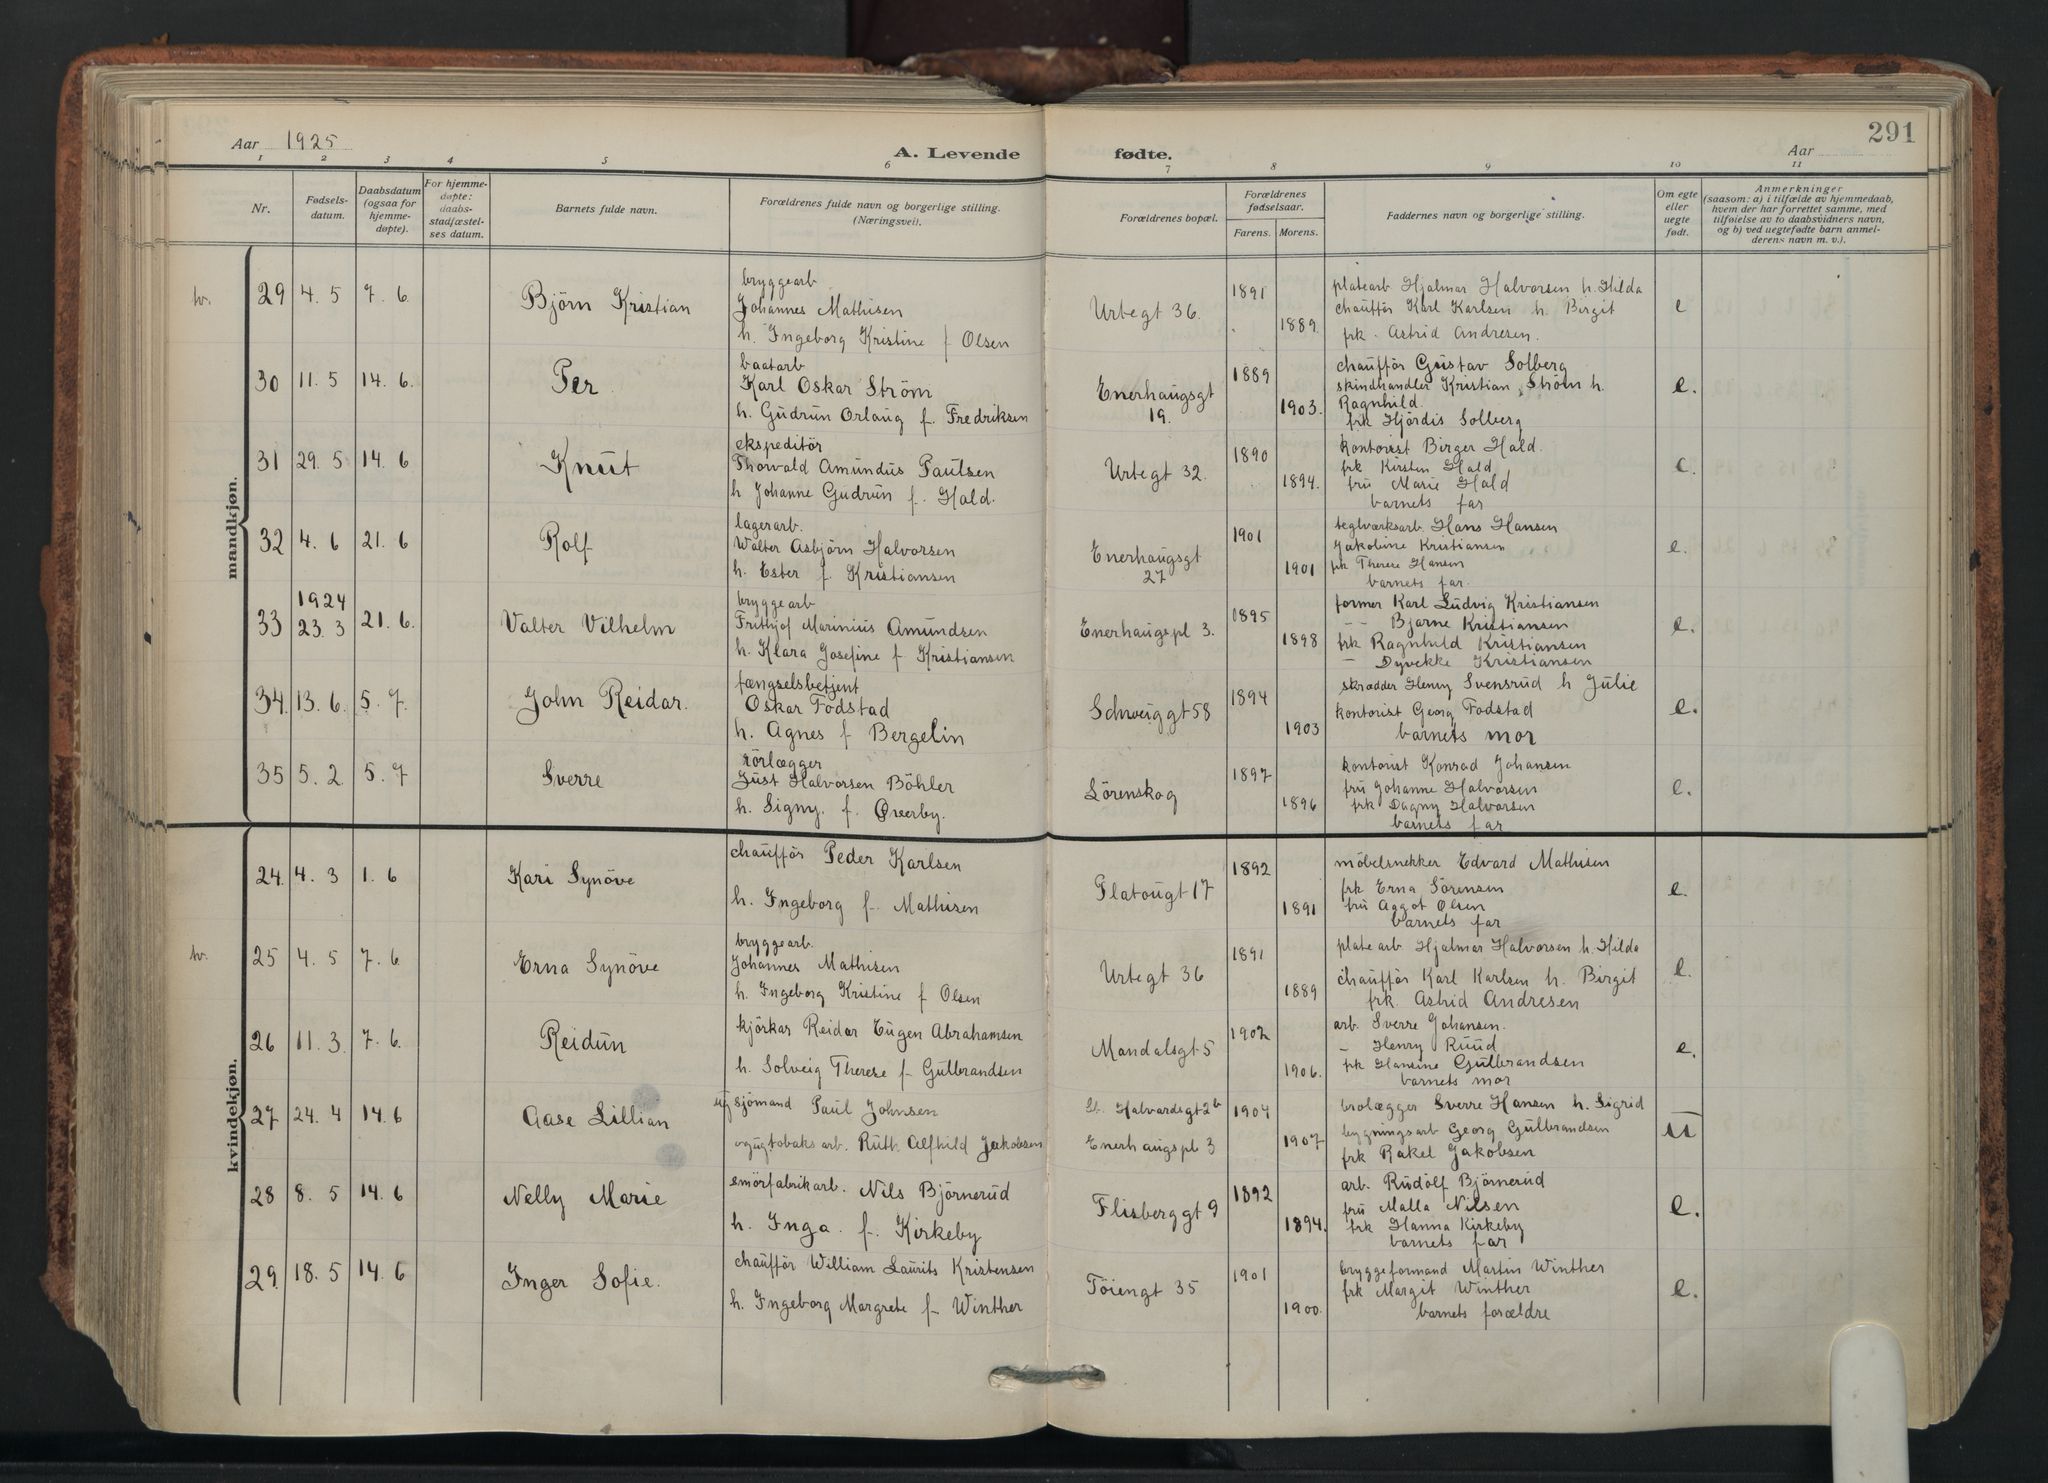 291
Aar 1925
A. Levende fødte.
Aar
1 2 3 4 5 6 7 8 9 10 11
Nr.
Fødsels-
datum.
Daabsdatum
(ogsaa for
hjemme-
døpte).
For hjemme-
døpte:
daabs-
stadfæstel-
ses datum.
Barnets fulde navn.
Forældrenes fulde navn og borgerlige stilling.
(Næringsvei).
Forældrenes bopæl.
Forældrenes
fødselsaar.
Farens. Morens.
Faddernes navn og borgerlige stilling.
Om egte
eller
uegte
født.
Anmerkninger
(saasom: a) i tilfælde av hjemmedaab,
hvem der har forrettet samme, med
tilføielse av to daabsvidners navn,
og b) ved uegtefødte barn anmel-
derens navn m. v.).
mandkjøn.
tv. 29 4. 5 7. 6. Björn Kristian
bryggearb
Johannes Mathisen
h. Ingeborg Kristine f Olsen
Urtegt 36. 1891 1889.
platearb Hjalmar Halvorsen h. Hilda
chaufför Karl Karlsen h. Birgit
frk. Astrid Andresen.
e
30 11. 5 14. 6. Per.
baatarb
Karl Oskar Ström
h. Gudrun Orlaug f. Fredriksen
Enerhaugsgt
19.
1889 1903.
chaufför Gustav Solberg
skindhandler Kristian Ström h.
Ragnhild.
frk Hjördis Solberg
e.
31 29. 5 14. 6 Knut
ekspeditör
Thorvald Amundus Paulsen
h Johanne Gudrun f. Hald.
Urtegt 32. 1890 1894.
kontorist Birger Hald.
frk Kirsten Hald
fru Marie Hald
barnets far
e.
32 4. 6 21. 6 Rolf
lagerarb.
Walter Asbjörn Halvorsen
h. Ester f. Kristiansen
Enerhaugsgt
27
1901 1901
teglværksarb. Hans Hansen
Jakobine Kristiansen
frk Therese Hansen
barnets far.
e.
33 1924
23. 3 21. 6. Valter Vilhelm
bryggearb
Frithjof Marinius Amundsen
h. Klara Josefine f Kristiansen
Enerhaugspl 3. 1895 1898
former Karl Ludvig Kristiansen
– – Bjarne Kristiansen
frk Ragnhild Kristiansen
– Dyvekke Kristiansen
e.
34. 13. 6. 5. 7. John Reidar.
fængselsbetjent
Oskar Fodstad
h. Agnes f Bergelin
Schweiggt 58 1894 1903
skrædder Henry Svensrud h Julie
kontorist Georg Fodstad
barnets mor
e.
35 5. 2. 5. 7 Sverre
rörlægger
Just Halvorsen Böhler
h. Signy. f. Øverby.
Lörenskog 1897 1896
kontorist Konrad Johansen
fru Johanne Halvorsen
frk Dagny Halvorsen
barnets far
e.
kvindekjøn.
24. 4. 3 1. 6 Kari Synöve
chaufför Peder Karlsen
h. Ingeborg f. Mathisen
Platougt 17 1892 1891
möbelsnekker Edvard Mathisen
frk Erna Sörensen
fru Aagot Olsen
barnets far
e.
tv. 25 4. 5 7. 6 Erna Synöve
bryggearb.
Johannes Mathisen
h. Ingeborg Kristine f Olsen
Urtegt 36 1891 1889
platearb Hjalmar Halvorsen h. Hilda
chaufför Karl Karlsen h. Birgit
frk. Astrid Andresen
e.
26 11. 3. 7. 6. Reidun
kjörkar Reidar Eugen Abrahamsen
h. Solveig Therese f Gulbrandsen
Mandalsgt 5 1902 1906.
arb. Sverre Johansen.
– Henry Ruud
frk Hansine Gulbrandsen
barnets mor
e.
27 24. 4 14. 6 Aase Lillian
ug sjömand Paul Johnsen
og ug tobaks arb. Ruth Alfhild Jakobsen
St. Halvardsgt 2b
Enerhaugspl 3
1904 1907
brolægger Sverre Hansen h. Sigrid
bygningsarb Georg Gulbrandsen
frk Rakel Jakobsen
u
28 8. 5 14. 6 Nelly Marie
smörfabrikarb. Nils Björnerud
h. Inga. f. Kirkeby
Flisberggt 9 1892 1894.
arb. Rudolf Björnerud
fru Malla Nilsen
frk Hanna Kirkeby
barnets far
e.
29. 18. 5 14. 6 Inger Sofie.
chaufför William Laurits Kristensen
h. Ingeborg Margrete f Winther
Töiengt 35 1901 1900.
bryggeformand Martin Winther
frk Margit Winther
barnets forældre
e.